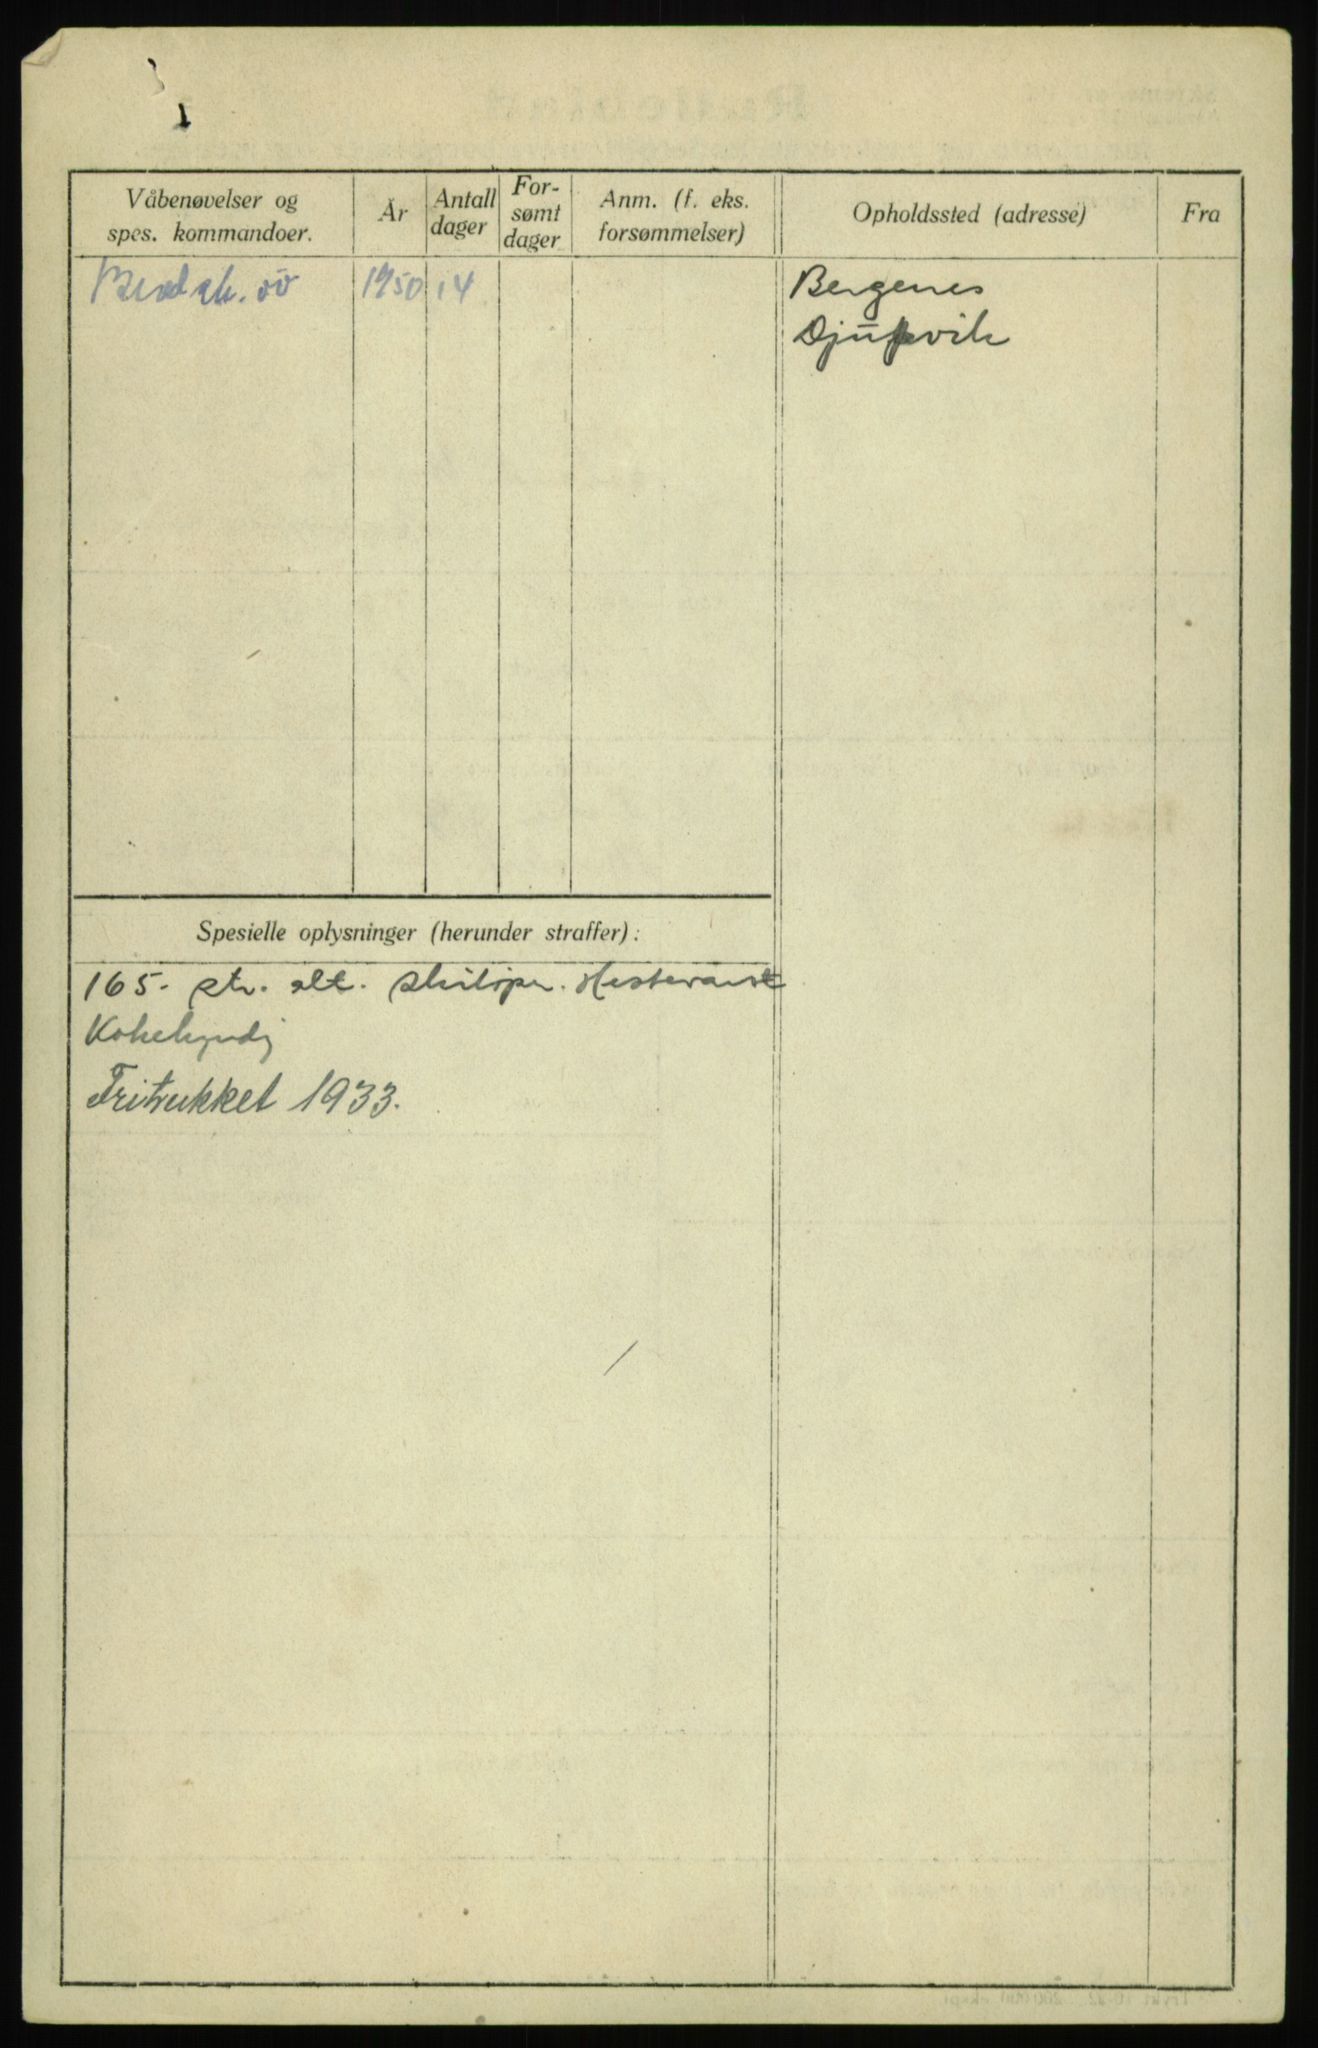 Våbenøvelser og
spes. kommandoer.
År
Antall
dager
For-
sømt
dager
Anm. (f. eks.
forsømmelser)
Opholdssted (adresse)
Fra
1950
14
Bergenes
Djupvik
Spesielle oplysninger (herunder straffer):
165. str. alt. skiløper. Hestevant
Kokekyndig
Fritrukket 1933.